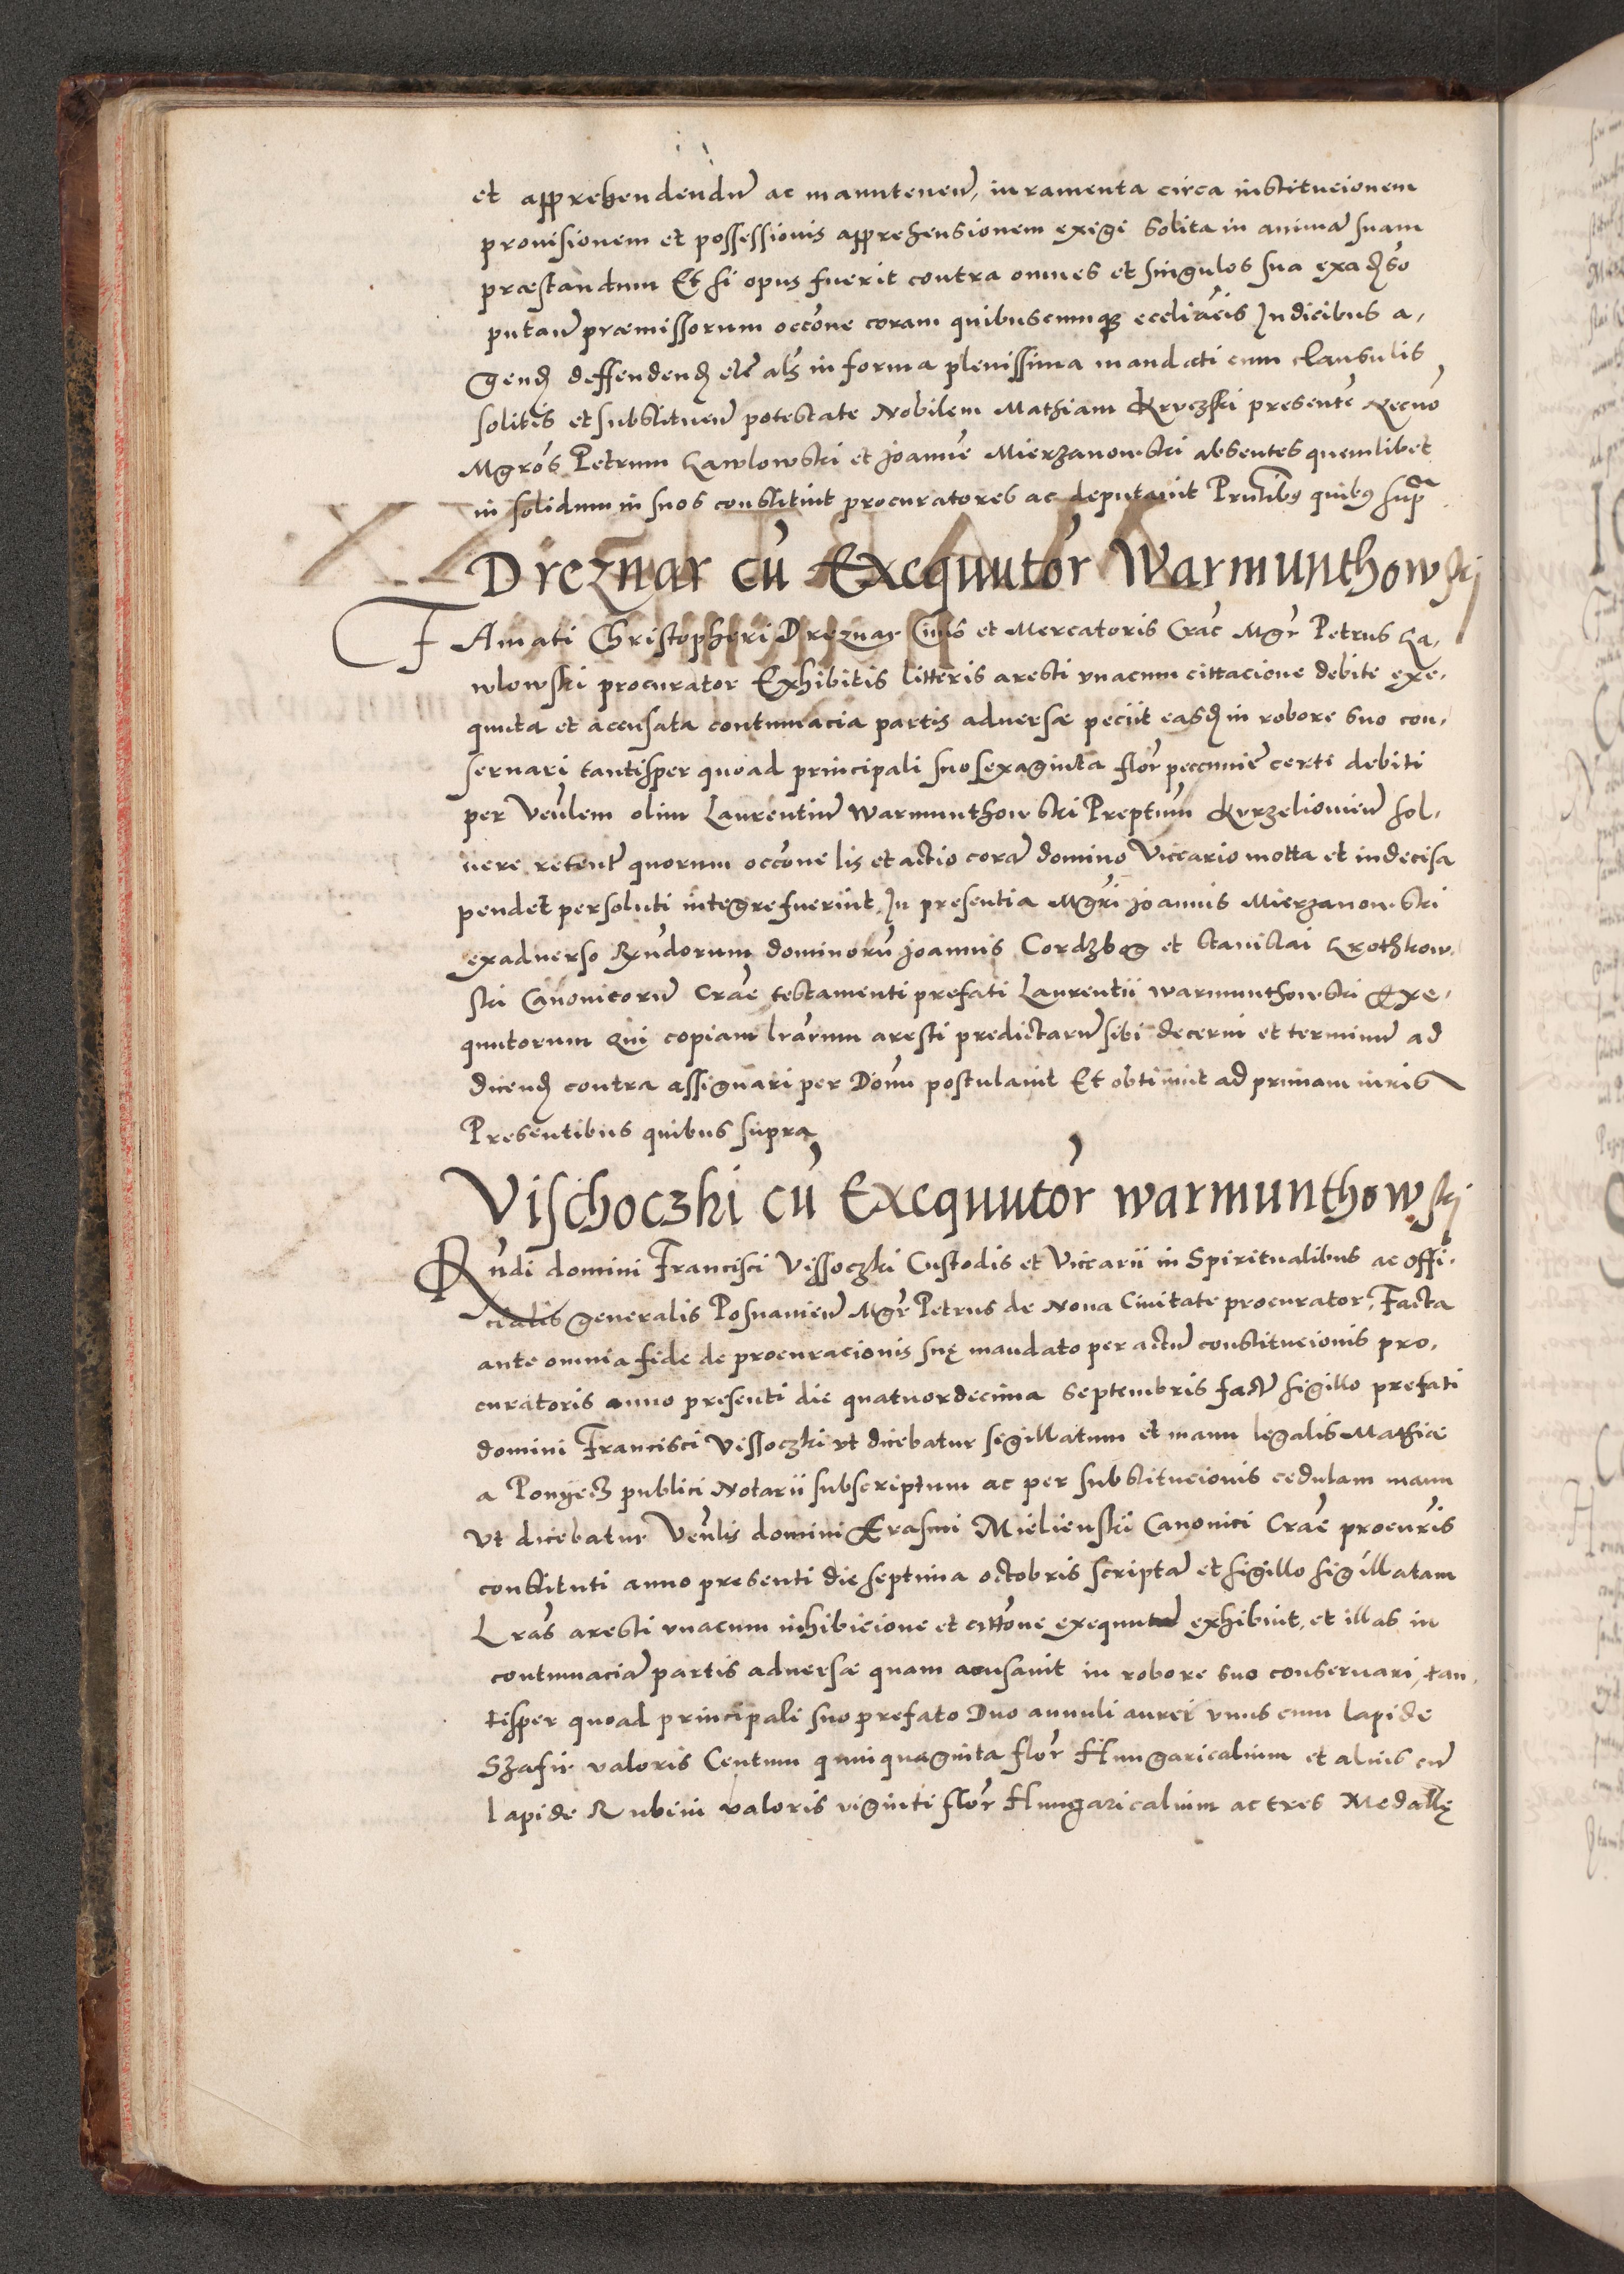 et apprehendendū ac manutenen̄, iuramenta circa institucionem
prouisionem et possessionis apprehensionem exigi solita in animā suam
præstandum Et si opus fuerit contra omnes et singulos sua
putan̄ præmissorum occōne coram quibuscumqꝫ Iudicibus a,
gend deffendend als in forma plenissima mandati cum clausulis
solitis et substituen̄ potestate Nobilem Mathiam presentē Necnō
Mgrōs Petrum Lawlowski et Joannē Mierzanowski absentes quemlibet
in solidum in suos constituit procuratores ac deputauit quibꝰ supᵃ
Dreznar cū Exequutor̄ Warmunthowskj
FAmati Christopheri Dreznar Ciuis et Mercatoris Crac̄ Mgr̄ Petrus La,
wlowski procurator Exhibitis litteris aresti vnacum cittacione debite exe,
quuta et accusata contumacia partis aduersæ peciit easd in robore suo con,
seruari tantisper quoad principali suo sexaginta flor̄ peccuniē certi debiti
per Veñlem olim Laurentiū Warmunthowski Preptum̄ sol,
uere retent̄ quorum occōne lis et actio corā domino Viccario motta et indecisa
pendet persoluti integre fuerint, In presentia Mgr̄i Joannis Mierzanowski
exaduerso Rn̄dorum dominorū Joannis Cordzbog et Stanislai Krothkow,
ski Canonicorū Crac̄ testamenti prefati Laurentii Warmunthowski Exe,
quutorum Qui copiam lrārum aresti predictarū sibi decerni et terminū ad
dicend contra assignari per Don̄u postulauit Et obtinuit ad primam iuris
Presentibus quibus supra
Vischoczki cū Exequutor̄ warmunthowskj
Rn̄di domini Francisci Vissoczki Custodis et Viccarii in Spiritualibus ac offi,
cialis generalis Posnanien̄ Mgr̄ Petrus de Noua Ciuitate procurator, Facta
ante omnia fide de procuracionis suę mandato per actū constitucionis pro,
curatoris anno presenti die quatuordecima Septembris fact̄ sigillo prefati
domini Francisci Vissoczki vt dicebatur sigillatum et manu legalis Mathiæ
a publici Notarii subscriptum ac per substitucionis cedulam manu
Vt dicebatur Veñlis domini Erasmi Mielienski Canonici Crac̄ procur̄is
constituti anno presenti die septima octobris scriptā et sigillo sigillatam
Lrās aresti vnacum inhibicione et cittōne exequutā exhibuit, et illas in
contumaciā partis aduersæ quam acusauit in robore suo conseruari, tan,
tisper quoad principali suo prefato Duo annuli aurei vnus cum lapide
Szafir valoris Centum quinquaginta flor̄ Hungaricalium et alius cū
lapide Rubin valoris viginti flor̄ Hungaricalium ac tres Medallę